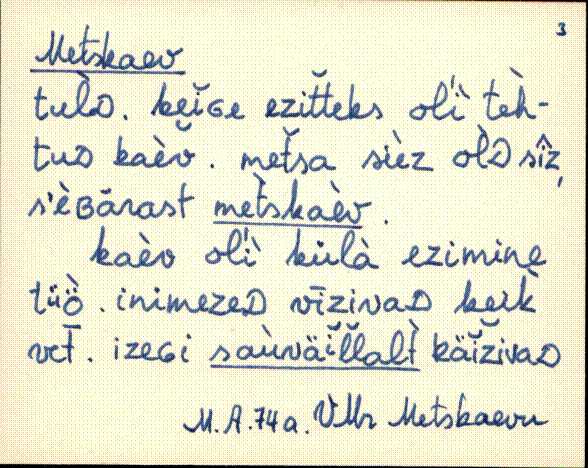 3
Metskaev
tulD. kei̮Ge ezitteks oli tèh-
tuD kaèv. metsa sièz olD sîz,
s'èBārast mètskaèv.
kaèv oli külà ezimine
tüö̀. inimezeD vīzivaD keik
vet̄. izeGi saùnäi̮llalt̀ käiziva​D
M.A. 74 a. VMr Metskaevu